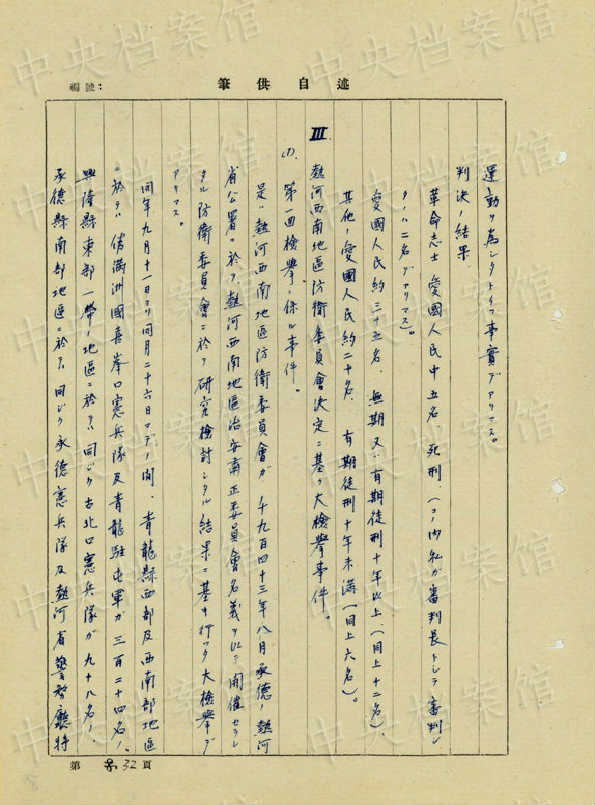 編號：
述自供筆
運動ヲ為シタトイフ事實デアリマス。
判決ノ結果
革命志士、愛國人民中五名、死刑、(コノ内私ガ審判長トシテ審判シ
タノハ二名デアリマス)。
愛國人民約三十五名、無期又ハ有期徒刑十年以上、(同上十二名)、
其他ノ愛國人民約二十名、有期徒刑十年未滿(同上六名)。
III 熱河西南地區防衛委員會決定ニ基ク大檢擧事件。
(1) 第一回檢擧ニ係ル事件。
是ハ熱河西南地區防衛委員會ガ千九百四十三年八月承德ノ熱河
省公署ニ於テ熱河西南地區治安肅正委員會名義ヲ以テ開催セラレ
タル防衛委員會ニ於テ研究檢討シタル結果ニ基キ行ツタ大檢擧デ
アリマス。
同年九月十一日ヨリ同月二十六日マデノ間、青龍縣西部及西南部地區
ニ於テハ偽滿洲國喜峯口憲兵隊及青龍駐屯軍ガ三百二十四名ノ、
興隆縣東部一帶ノ地區ニ於テハ同ジク古北口憲兵隊ガ九十八名ノ、
承德縣南部地區ニ於テハ同ジク承德憲兵隊及熱河省警務廳特
第 32 頁
中央档案馆